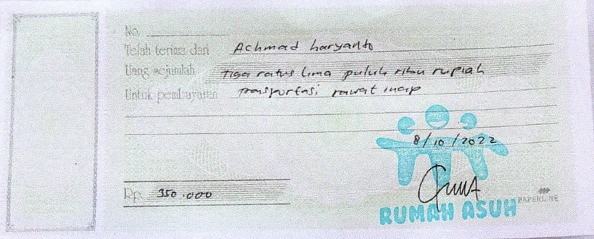 No.
Telah terima dari Achmad haryanto
Uang sejumlah tiga ratus lima puluh ribu rupiah
Untuk pembayaran transportasi rawat inap
8/10/2022
Rp. 350.000
PAPERLINE
RUMAH ASUH